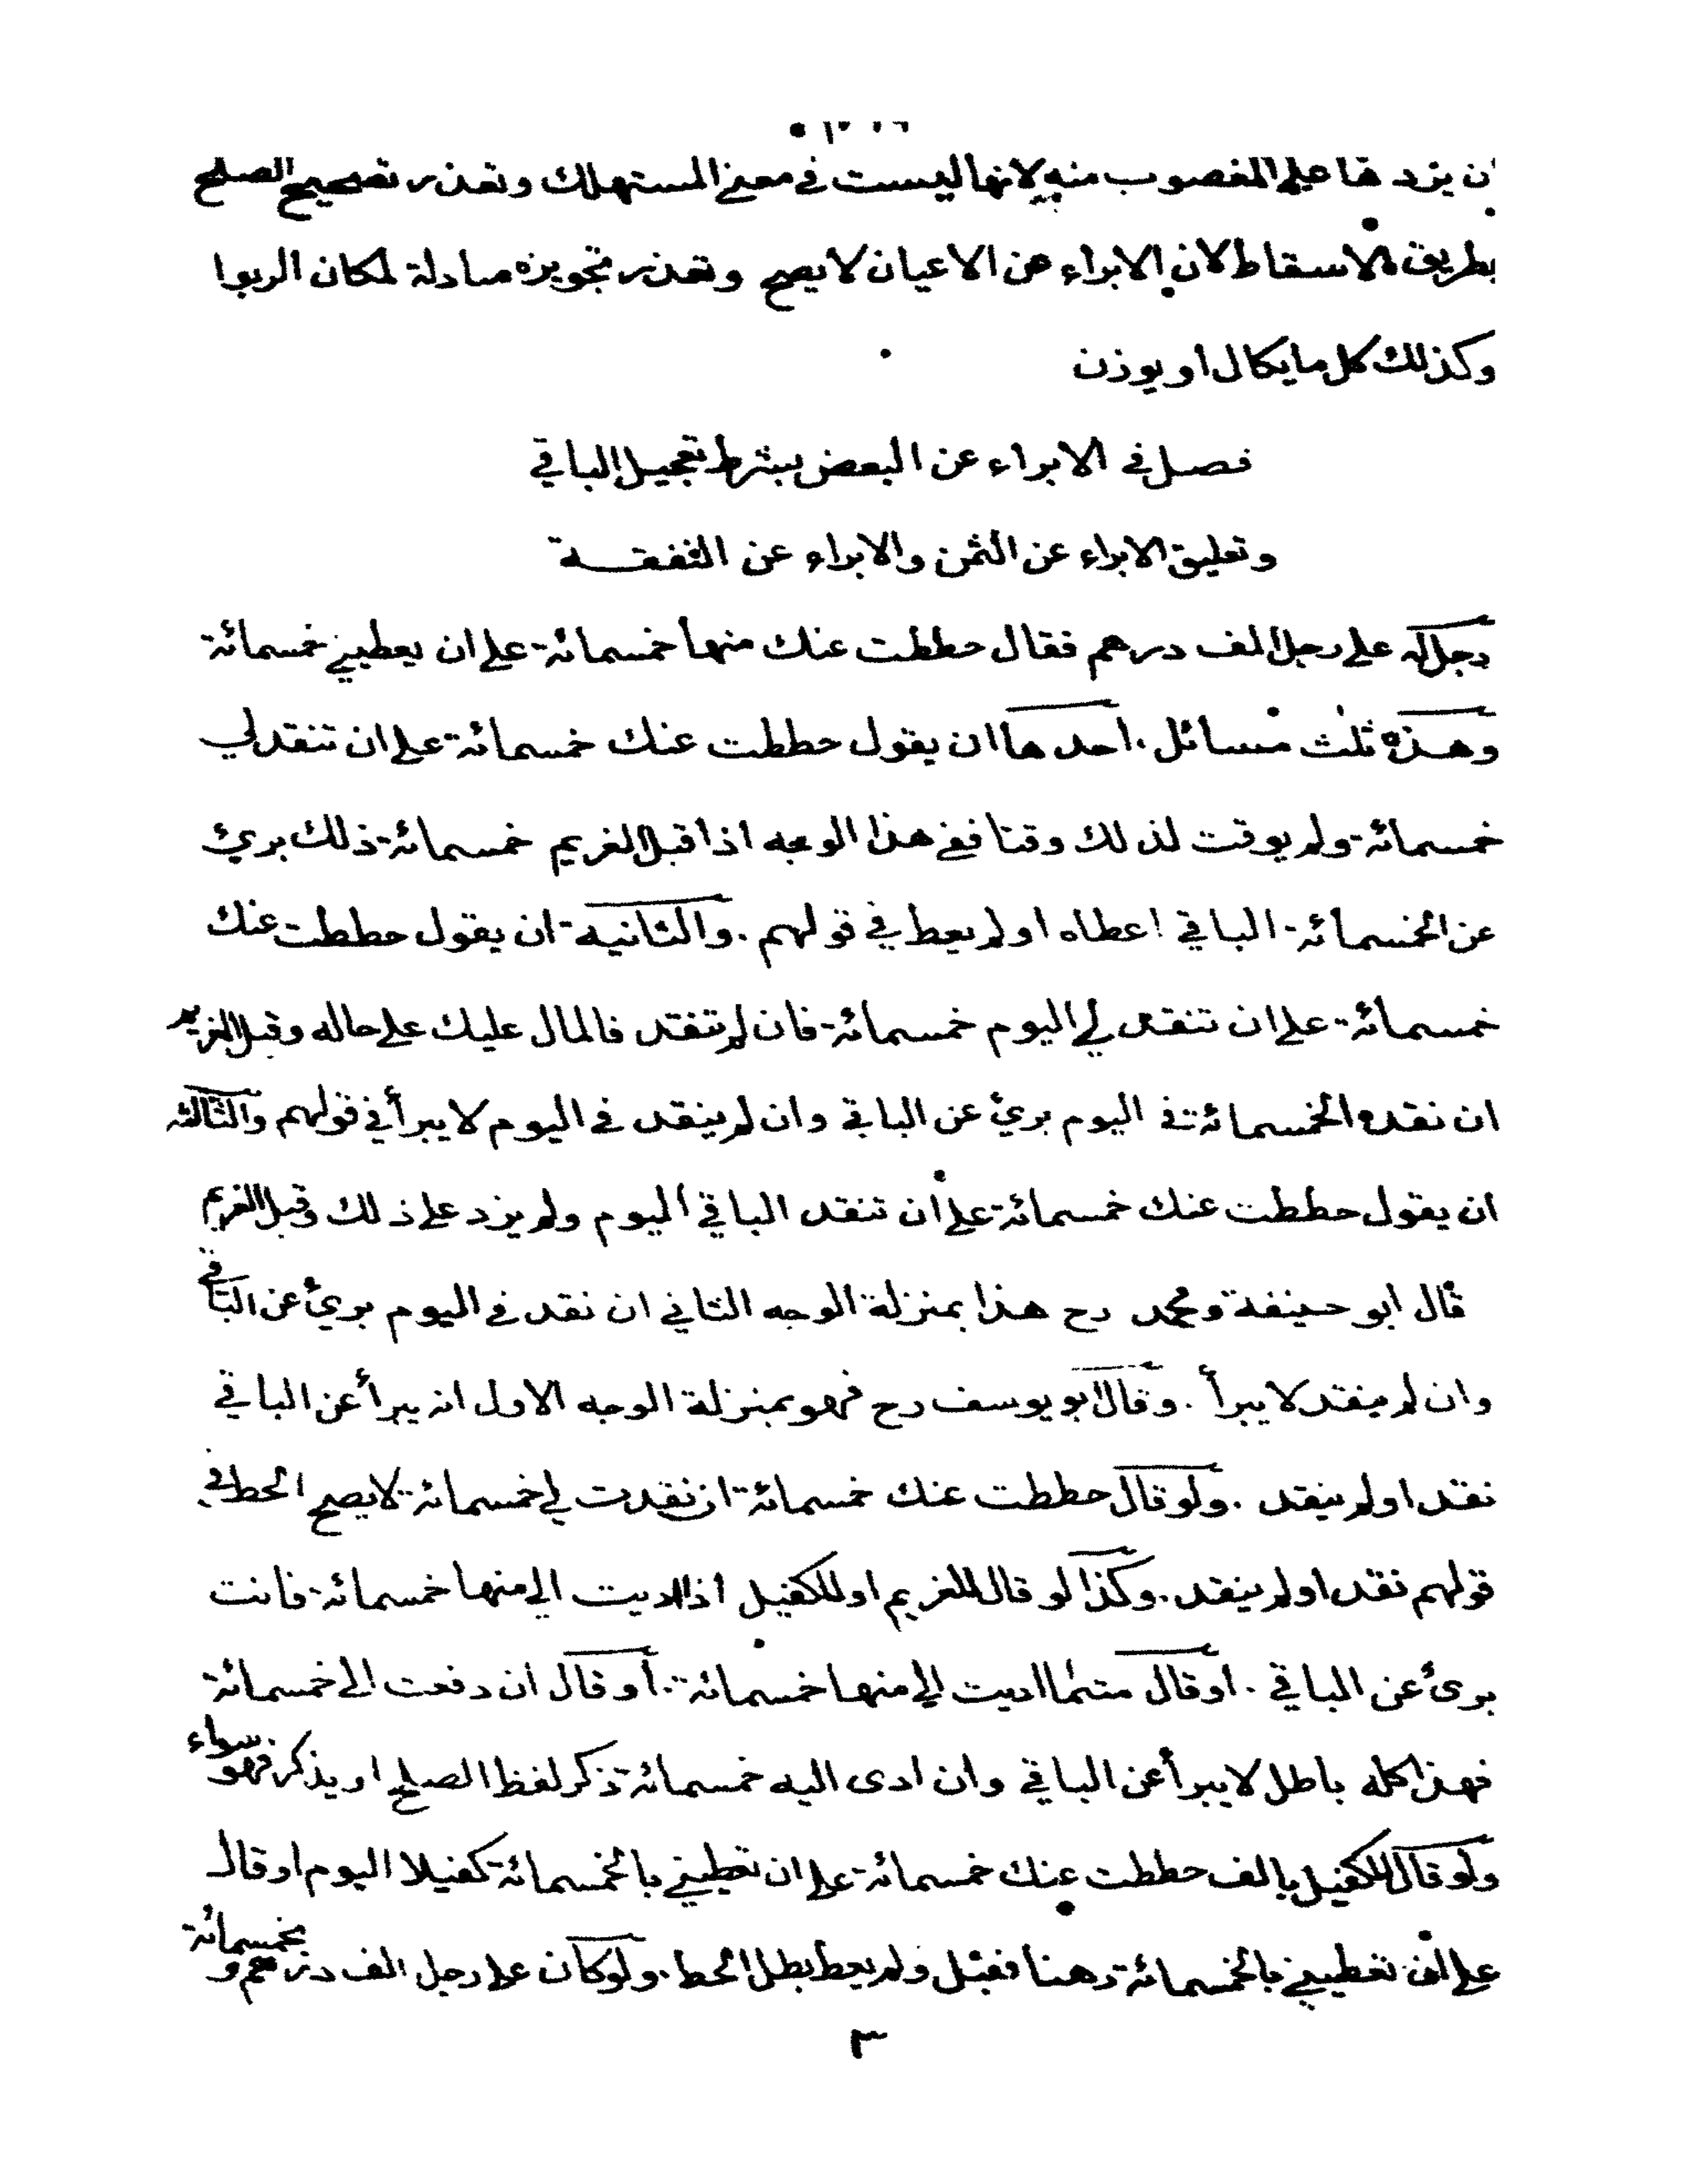 ان يردها على المغصوب منه لانها ليست في معنى المستهلك وتعذر تصحيح الصلح
بطريق الاسقاط لان الابراء عن الاعيان لا يصح وتعذر تجويزه مبادلة لمكان الربوا
وكذلك كل ما يكال او يوزن
فصل في الابراء عن البعض بشرط تعجيل الباقي
وتعليق الابراء عن الثمن والابراء عن النفقة
رجل له على رجل الف درهم فقال حططت عنك منها خمسمائة على ان يعطيني خمسمائة
وهذه ثلث مسائل. احدها ان يقول حططت عنك خمسمائة على ان تنقد لي
خمسمائة ولم يوقت لذلك وقتا ففي هذا الوجه اذا قبل الغريم خمسمائة ذلك بريئ
عن الخمسمائة الباقي اعطاه او لم يعط في قولهم. والثانية ان يقول حططت عنك
خمسمائة على ان تنقد لي اليوم خمسمائة فان لم تنقد فالمال عليك على حاله وقبل الغريم
ان نقده الخمسمائة في اليوم بريئ عن الباقي وان لم ينقد في اليوم لا يبرأ في قولهم والثالثه
ان يقول حططت عنك خمسمائة على ان تنقد الباقي اليوم ولم يزد على ذلك وقبل الغريم
قال ابو حنيفة ومحمد رح هذا بمنزلة الوجه الثاني ان نقد في اليوم بريئ عن الباقي
وان لم ينقد لا يبرأ. وقال ابو يوسف رح فهو بمنزلة الوجه الاول انه يبرأ عن الباقي
نقد او لم ينقد. ولو قال حططت عنك خمسمائة ان نقدت لي خمسمائة لا يصح الحط في
قولهم نقد او لم ينقد. وكذا لو قال للغريم او للكفيل اذا اديت الي منها خمسمائة فانت
برئ عن الباقي. او قال متى ما اديت الي منها خمسمائة. او قال ان دفعت الي خمسمائة
فهذا كله باطل لا يبرأ عن الباقي وان ادى اليه خمسمائة ذكر لفظ الصلح او يذكر فهو سواء
ولو قال للكفيل بالف حططت عنك خمسمائة على ان تعطيني بالخمسمائة كفيلا اليوم او قال
على ان تعطيني بالخمسمائة رهنا فقبل ولم يعط بطل الحط. ولو كان على رجل الف درهم و بخمسمائة
٣